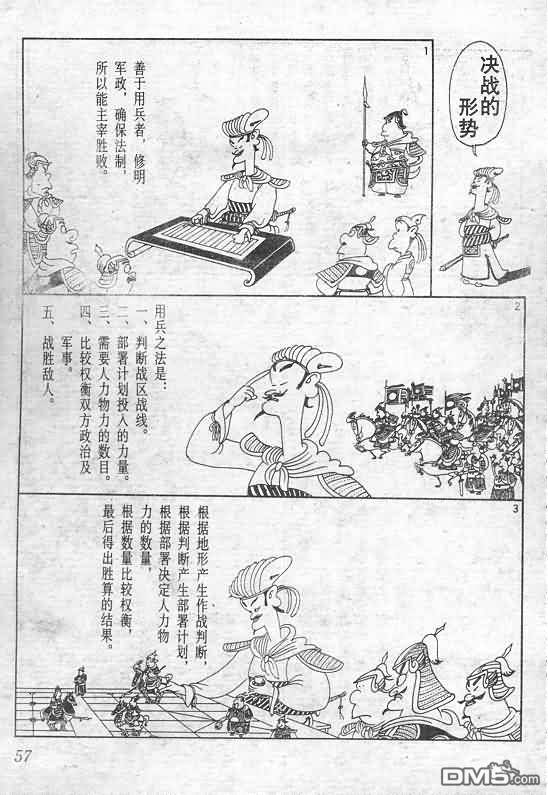 决战的
形势
1
善于用兵者，修明
军政，确保法制，
所以能主宰胜败。
2
用兵之法是：
一、判断战区战线。
二、部署计划投入的力量。
三、需要人力物力的数目。
四、比较权衡双方政治及
军事。
五、战胜敌人。
3
根据地形产生作战判断，
根据判断产生部署计划，
根据部署决定人力物
力的数量，
根据数量比较权衡，
最后得出胜算的结果。
57
DM5.com